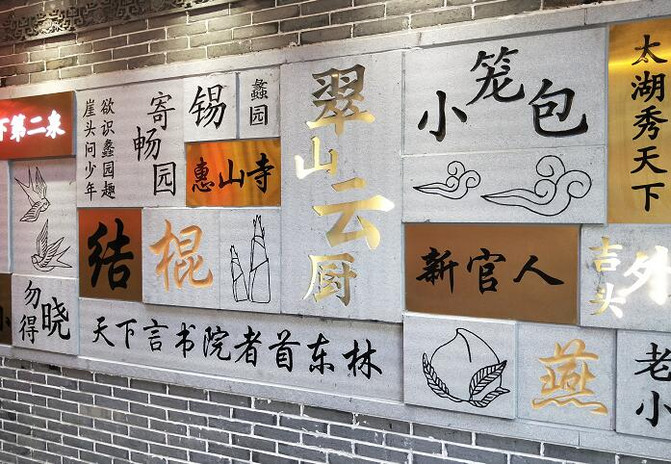 下第二泉
欲识蠡园趣
崖头问少年
寄畅园
锡
蠡园
惠山寺
结
棍
勿晓得
小
天下言书院者首东林
翠山云厨
小笼包
太湖秀天下
新官人
言头
外
燕
老小